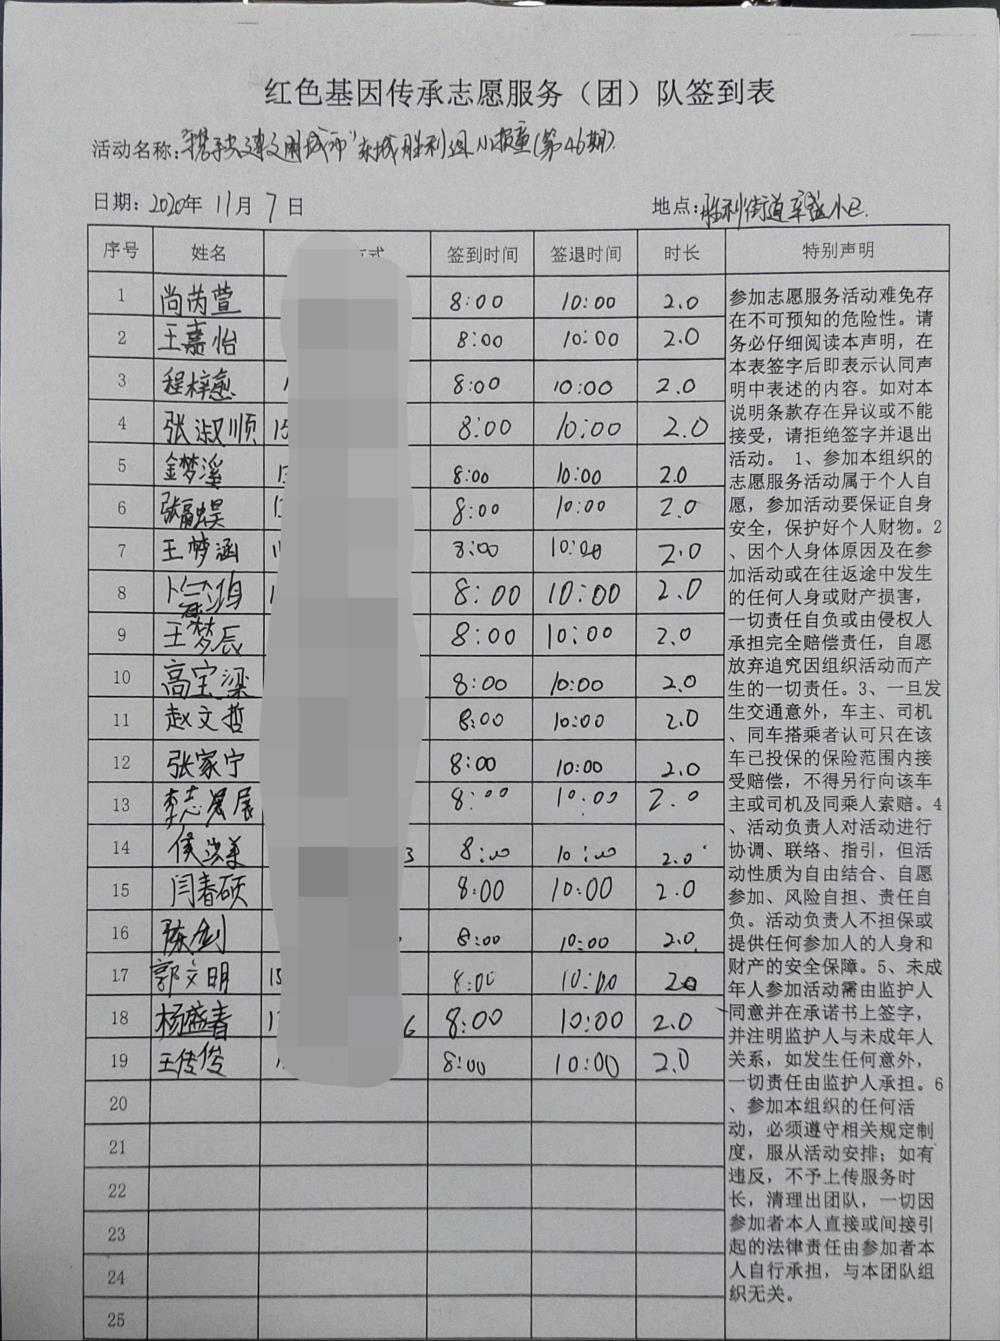 红色基因传承志愿服务（团）队签到表
活动名称："携手共建文明城市"东城胜利组小报童(第46期)
日期：2020年 11月 7日 地点：胜利街道 小区.
序号 姓名 方式 签到时间 签退时间 时长 特别声明
1 尚芮萱 8:00 10:00 2.0
2 王嘉怡 8:00 10:00 2.0
3 程梓愈 8:00 10:00 2.0
4 张淑顺 15 8:00 10:00 2.0
5 金梦溪 13 8:00 10:00 2.0
6 8:00 10:00 2.0
7 王梦涵 8:00 10:00 2.0
8 8:00 10:00 2.0
9 王梦辰 8:00 10:00 2.0
10 高宝梁 8:00 10:00 2.0
11 赵文哲 8:00 10:00 2.0
12 张家宁 8:00 10:00 2.0
13 李志晨展 8:00 10:00 2.0
14 侯 3 8:00 10:00 2.0
15 闫春硕 8:00 10:00 2.0
16 陈剑 8:00 10:00 2.0
17 郭文明 15 8:00 10:00 2.0
18 杨盛春 6 8:00 10:00 2.0
19 王传俊 8:00 10:00 2.0
20
21
22
23
24
25
参加志愿服务活动难免存
在不可预知的危险性。请
务必仔细阅读本声明，在
本表签字后即表示认同声
明中表述的内容。如对本
说明条款存在异议或不能
接受，请拒绝签字并退出
活动。 1、参加本组织的
志愿服务活动属于个人自
愿，参加活动要保证自身
安全，保护好个人财物。2
、因个人身体原因及在参
加活动或在往返途中发生
的任何人身或财产损害，
一切责任自负或由侵权人
承担完全赔偿责任，自愿
放弃追究因组织活动而产
生的一切责任。3、一旦发
生交通意外，车主、司机
、同车搭乘者认可只在该
车已投保的保险范围内接
受赔偿，不得另行向该车
主或司机及同乘人索赔。4
、活动负责人对活动进行
协调、联络、指引，但活
动性质为自由结合、自愿
参加、风险自担、责任自
负。活动负责人不担保或
提供任何参加人的人身和
财产的安全保障。5、未成
年人参加活动需由监护人
同意并在承诺书上签字，
并注明监护人与未成年人
关系，如发生任何意外，
一切责任由监护人承担。6
、参加本组织的任何活
动，必须遵守相关规定制
度，服从活动安排；如有
违反，不予上传服务时
长，清理出团队，一切因
参加者本人直接或间接引
起的法律责任由参加者本
人自行承担，与本团队组
织无关。